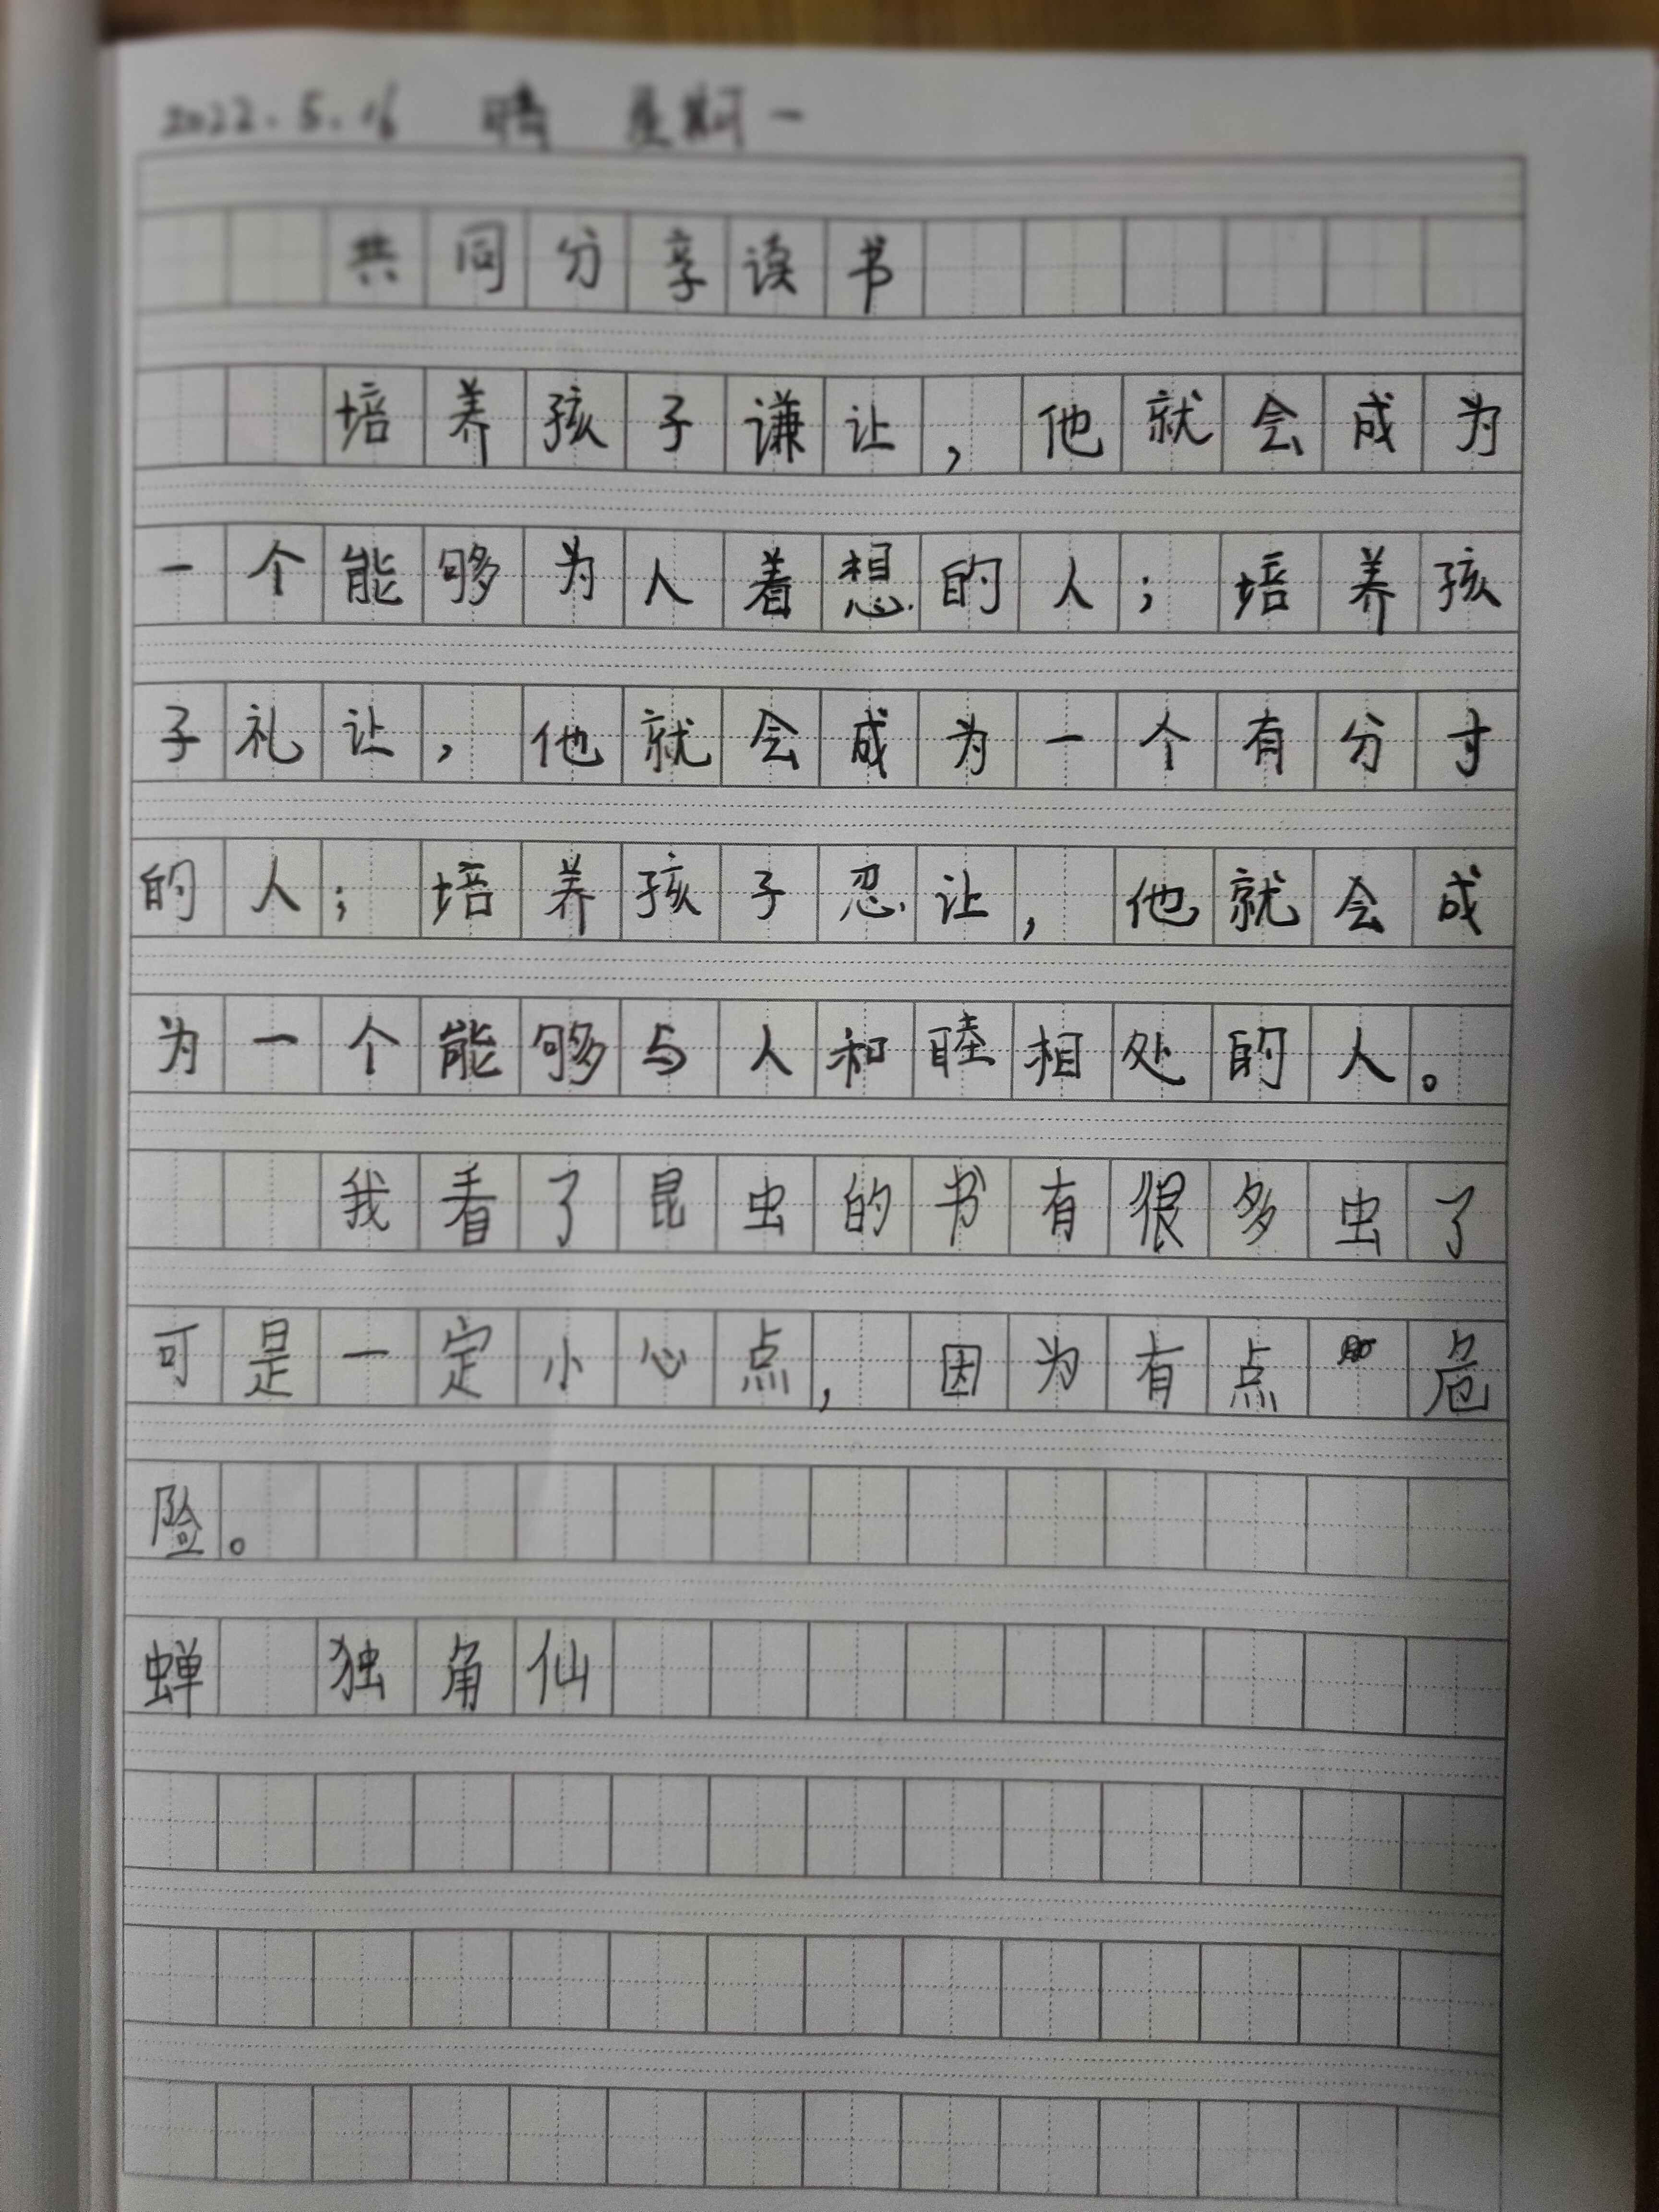 2022.5.16 晴 星期一
共同分享读书
培养孩子谦让,他就会成为
一个能够为人着想的人;培养孩
子礼让,他就会成为一个有分寸
的人;培养孩子忍让,他就会成
为一个能够与人和睦相处的人。
我看了昆虫的书有很多虫了
可是一定小心点,因为有点危
险。
蝉 独角仙